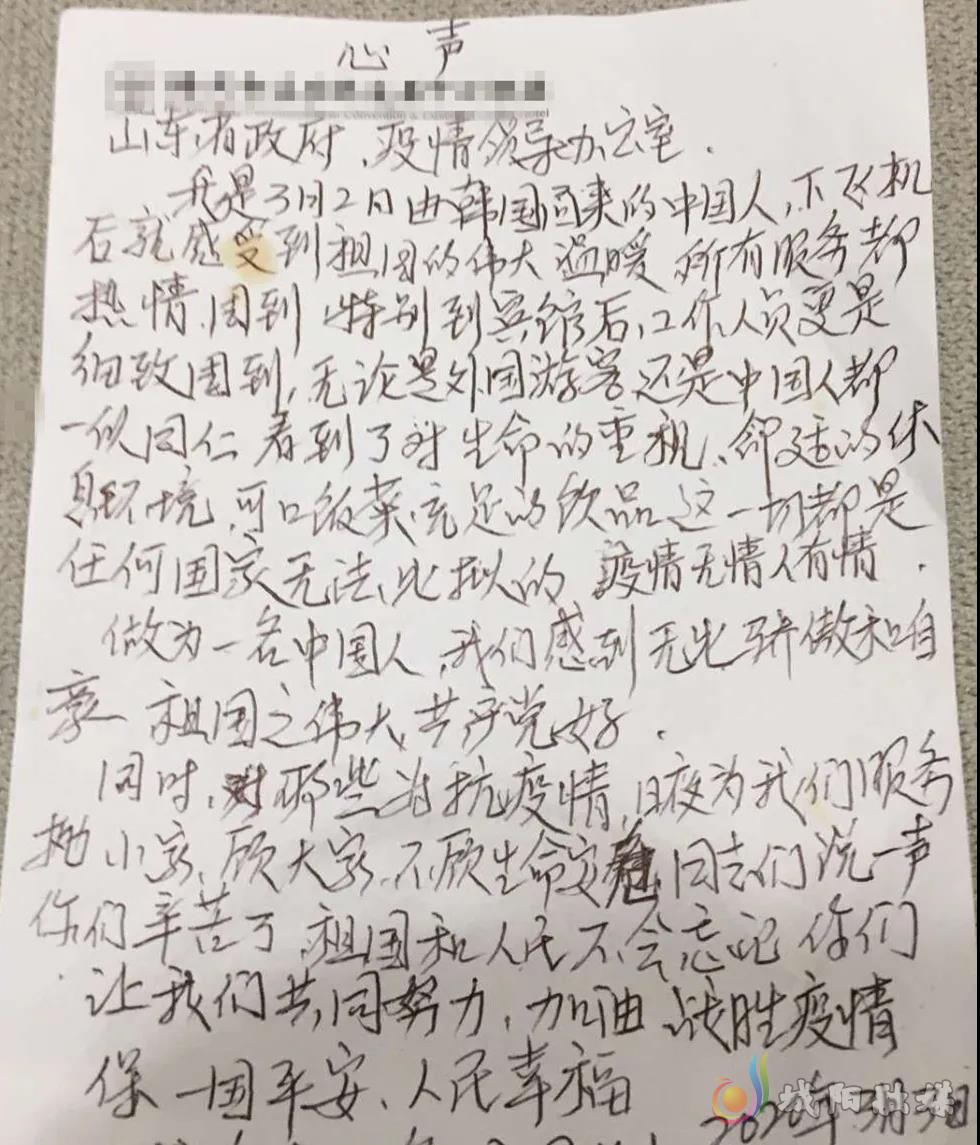 心声
Convention & Ex
山东省政府、疫情领导办公室.
我是3月2日由韩国回来的中国人,下飞机
后就感受到祖国的伟大温暖 所有服务都
热情、周到 特别到宾馆后,工作人员更是
细致周到,无论是外国游客还是中国人都
一似同仁 看到了对生命的重视、舒适的休
息环境,可口饭菜,充足的饮品 这一切都是
任何国家无法比拟的 疫情无情人有情.
做为一名中国人,我们感到无比骄傲和自
豪 祖国之伟大,共产党好.
同时,对那些为抗疫情,日夜为我们服务
抛小家,顾大家,不顾生命安危 同志们说一声
你们辛苦了,祖国和人民不会忘记你们
让我们共同努力,加油 战胜疫情
保一国平安、人民幸福
2020年3月3日
城阳壮媒